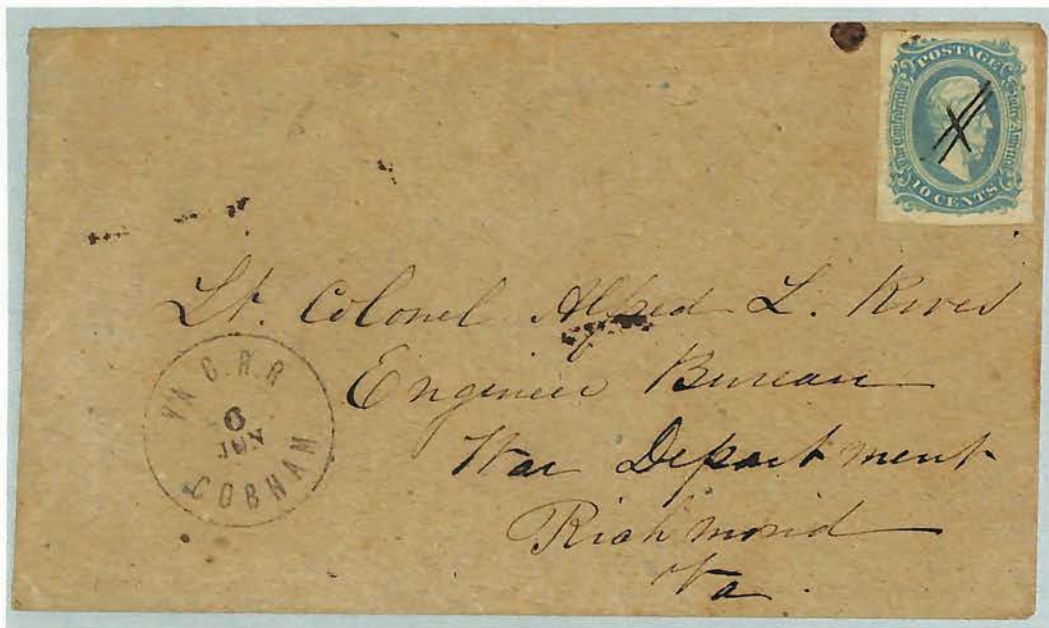 POSTAGE
The Confederate States of America
10 CENTS
Lt. Colonel Alfred L. Rives
Engineer Bureau
War Department
Richmond
Va.
VA C.R.R
6
JUN
COBHAM